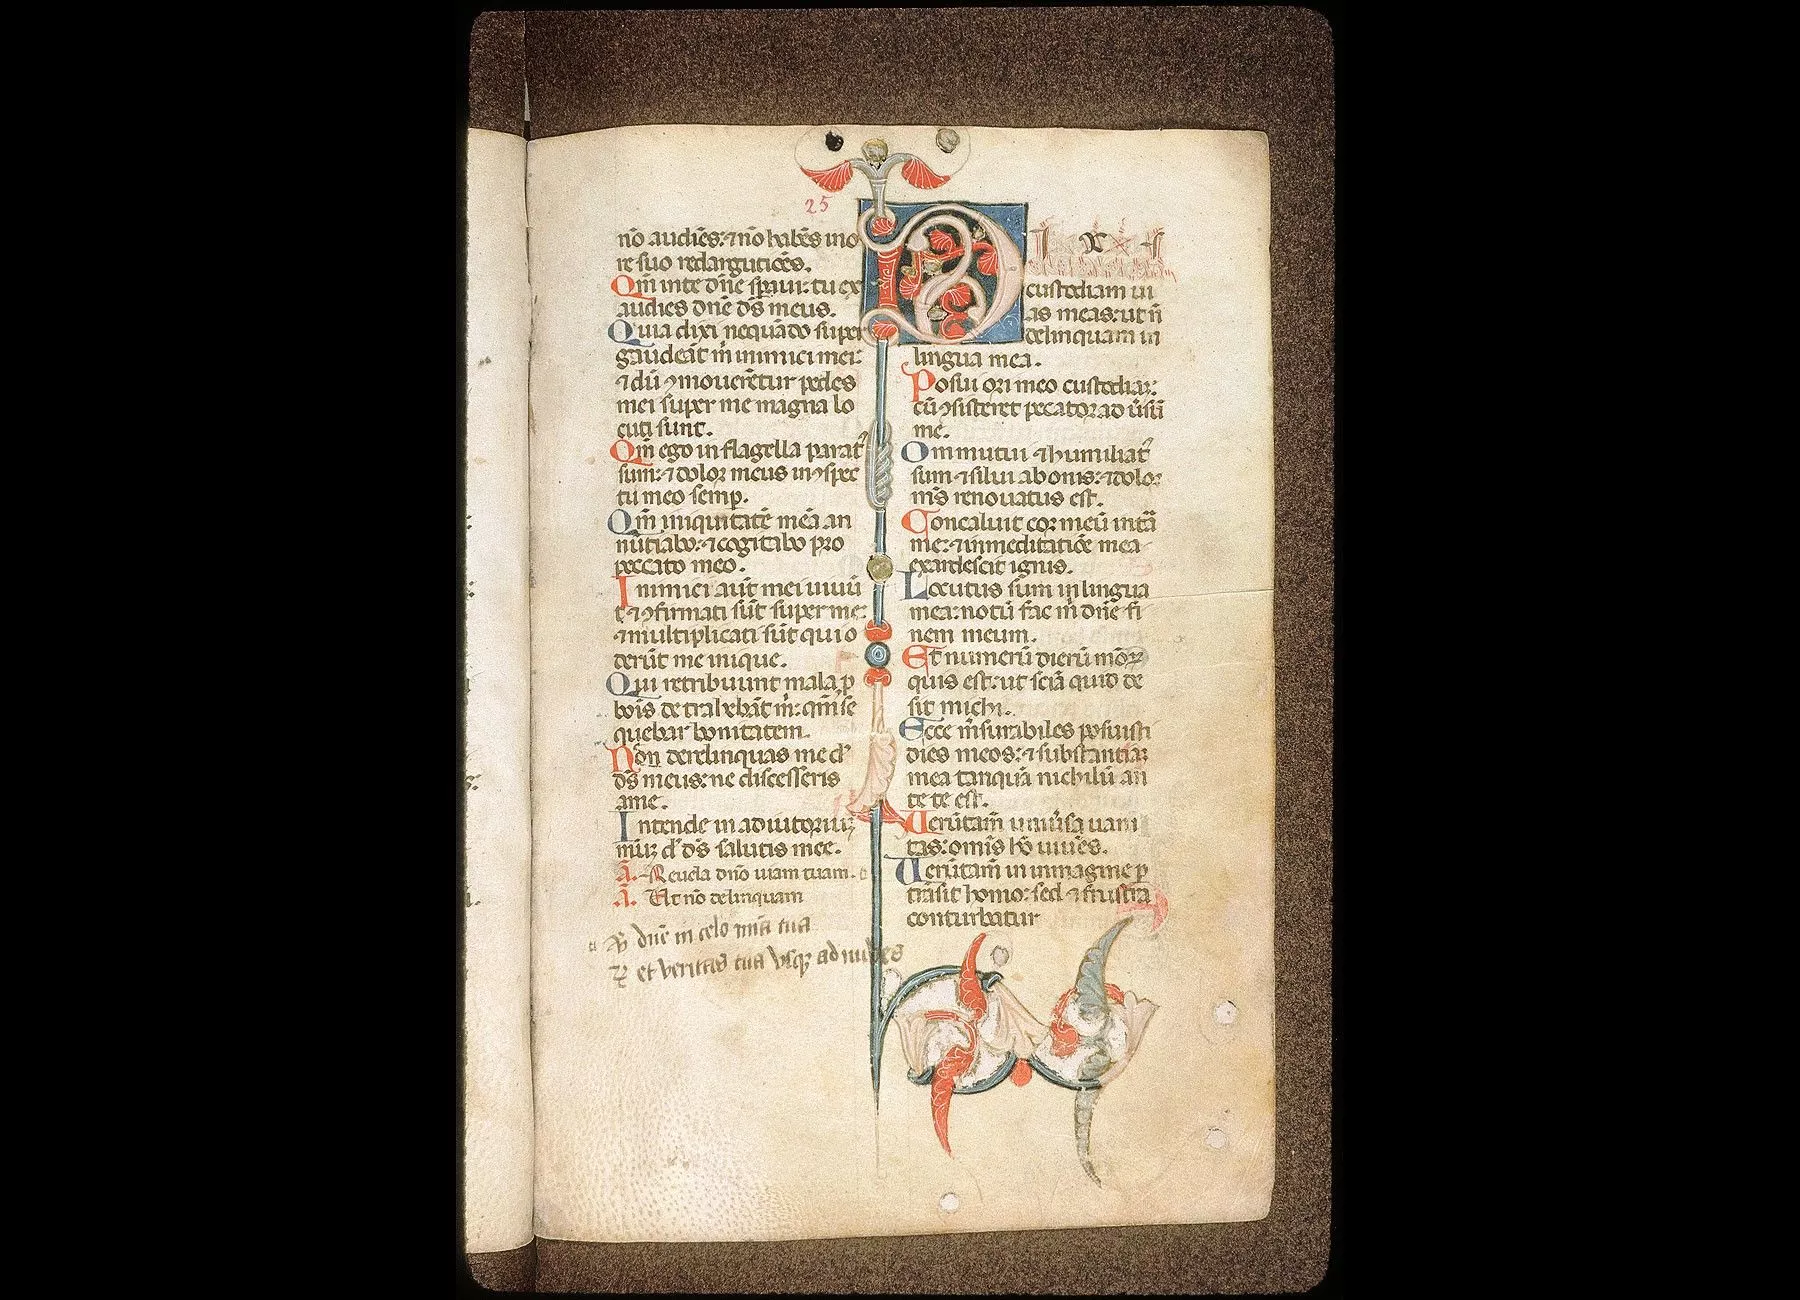 25
nō audiēs: ⁊ nō habēs ī ō
re suo redargutiōes.
Qm̄ in te dn̄e sp̄aui: tu ex
audies dn̄e d̄s meus.
Quia dixi nequādo super
gaudeāt m̄ inimici mei:
⁊ dū ꝯmouērētur pedes
mei super me magna lo
cuti sunt.
Qm̄ ego in flagella parat᷒
sum: ⁊ dolor meus in ꝯspec
tu meo semp̄.
Qm̄ iniquitatē meā an
nūtiabo: ⁊ cogitabo pro
peccato meo.
Inimici aūt mei uiuū
t ⁊ ꝯfirmati sūt super me:
⁊ multiplicati sūt qui o
derūt me inique.
Qui retribuunt mala p̄
bōis detrahebāt m̄: qm̄ se
quebar bonitatem.
Non derelinquas me d᷒
d̄s meus: ne discesseris
a me.
Intende in adiutoriuꝫ
muꝫ d᷒ d̄s salutis mee.
ā. Reuela dn̄o uiam tuam.
ā. Ut nō delinquam
dn̄e in celo mīa tua
et veritas tua vsqꝫ ad nubes
Dixi
custodiam ui
as meas: ut n̄
delinquam in
lingua mea.
Posui ori meo custodiaꝫ:
cū ꝯsisteret peccator ad ūsū
me.
Ommutui ⁊ humiliat᷒
sum ⁊ silui a bonis: ⁊ dolor
m̄s renouatus est.
Concaluit cor meū intā
me: ⁊ in meditatiōe mea
exardescit ignis.
Locutus sum in lingua
mea: notū fac m̄ dn̄e fi
nem meum.
Et numerū dierū mōꝝ
quis est: ut sciā quid de
sit michi.
Ecce m̄surabiles posuisti
dies meos: ⁊ substantiaꝫ
mea tanquā nichilū an
te te est.
Uerūtam̄ uniūsa uani
tas: omis hō uiuēs.
Uerūtam̄ in immagine p̄
trāsit homo: sed ⁊ frustra
conturbatur